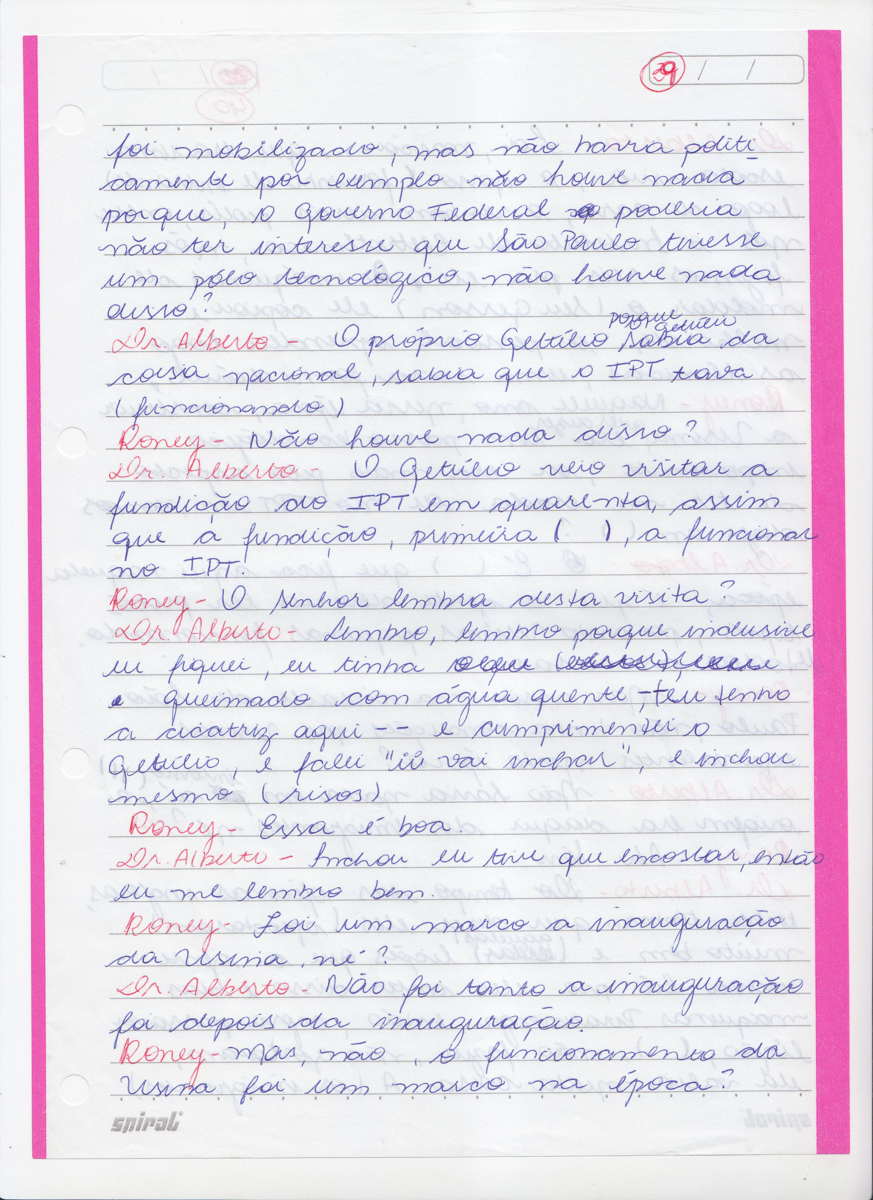 39 / /
foi mobilizado, mas não havia politi
camente por exemplo não houve nada
porque, o Governo Federal poderia
não ter interesse que São Paulo tivesse
um pólo tecnológico, não houve nada
disso?
porque
o Getúlio
Dr. Alberto - O próprio Getúlio sabia da
coisa nacional, sabia que o IPT tava
(funcionando)
Roney - Não houve nada disso?
Dr. Alberto - O Getúlio veio visitar a
fundição do IPT em quarenta, assim
que a fundição, primeira ( ), a funcionar
no IPT.
Roney - O senhor lembra desta visita?
Dr. Alberto - Lembro, lembro porque inclusive
eu fiquei, eu tinha
queimado com água quente - eu tenho
a cicatriz aqui -- e cumprimentei o
Getúlio, e falei "iii vai inchar", e inchou
mesmo (risos)
Roney - Essa é boa.
Dr. Alberto - Inchou eu tive que encostar, então
eu me lembro bem.
Roney - Foi um marco a inauguração
da Usina, né?
Dr. Alberto - Não foi tanto a inauguração
foi depois da inauguração.
Roney - Mas, não, o funcionamento da
Usina foi um marco na época?
spiral